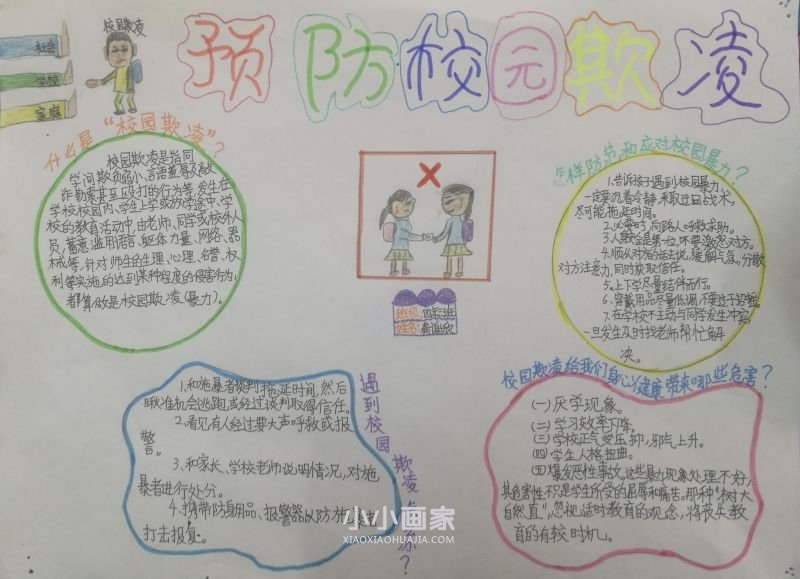 社会
学校
家庭
校园欺凌
预防校园欺凌
什么是“校园欺凌”?
校园欺凌是指同
学间欺负弱小、言语羞辱及敲
诈勒索甚至殴打的行为等,发生在
学校校园内、学生上学或放学途中、学
校的教育活动中,由老师、同学或校外人
员,蓄意滥用语言、躯体力量、网络、器
械等,针对师生的生理、心理、名誉、权
利等实施的达到某种程度的侵害行为,
都算做是校园欺凌(暴力)。
班级:四
姓名:
怎样防范和应对校园暴力?
1.告诉孩子遇到校园暴力,
一定要沉着冷静,采取迂回战术,
尽可能拖延时间。
2.必要时,向路人呼救求助。
3.人身安全是第一位,不要激怒对方。
4.顺从对方的话去说,缓解气氛,分散
对方注意力,同时获取信任。
5.上下学尽量结伴而行。
6.穿戴用品尽量低调,不要过于招摇。
7.在学校不主动与同学发生冲突,
一旦发生及时找老师帮忙解
决。
遇到校园欺凌
?
1.和施暴者谈判,拖延时间,然后
瞅准机会逃跑,或经过谈判取得信任。
2.看见有人经过要大声呼救或报
警。
3.和家长、学校老师说明情况,对施
暴者进行处分。
4.携带防身用品、报警器以防
打击报复。
校园欺凌给我们身心健康带来哪些危害?
(一)厌学现象。
(二)学习效率下降。
(三)学校正气受压抑,邪气上升。
(四)学生人格扭曲。
(五)爆发恶性事故,这些暴力现象处理不好,
其危害性不只是学生所受的屈辱和痛苦。那种“树大
自然直”,忽视适时教育的观念,将丧失教
育的有效时机。
小小画家
XIAOXIAOHUAJIA.COM